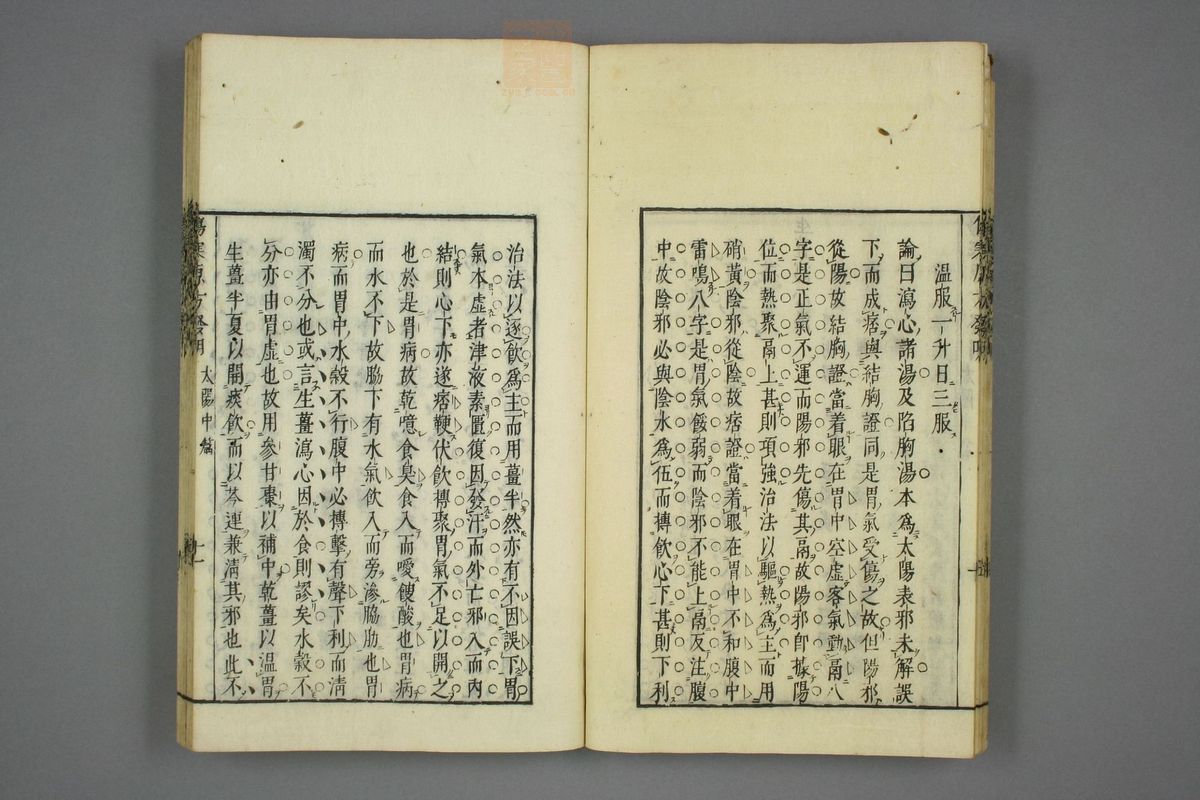 溫服一升日三服
論曰瀉心諸湯及陷胸湯本爲太陽表邪未解誤
下而成痞與結胸證同是胃氣受傷之故但陽邪
從陽故結胸證當着眼在胃中空虛客氣動膈八
字是正氣不運而陽邪先傷其膈故陽邪卽據陽
位而熱聚膈上甚則項強治法以驅熱爲主而用
硝黃陰邪從陰故痞證當着眼在胃中不和腹中
雷鳴八字是胃氣餒弱而陰邪不能上膈反注腹
中故陰邪必與陰水爲伍而摶飲心下甚則下利
治法以逐飲爲主而用薑半然亦有不因誤下胃
氣本虛者津液素匱復因發汗而外亡邪入而內
結則心下亦遂痞鞕伏飲摶聚胃氣不足以開之
也於是胃病故乾噫食臭食入而噯餿酸也胃病
而水不下故脇下有水氣飲入而旁滲脇肋也胃
病而胃中水穀不行腹中必摶擊有聲下利而淸
濁不分也或言生薑瀉心因於食則謬矣水穀不
分亦由胃虛也故用參甘棗以補中乾薑以溫胃
生薑半夏以開痰飲而以芩連兼淸其邪也此不
太陽中篇